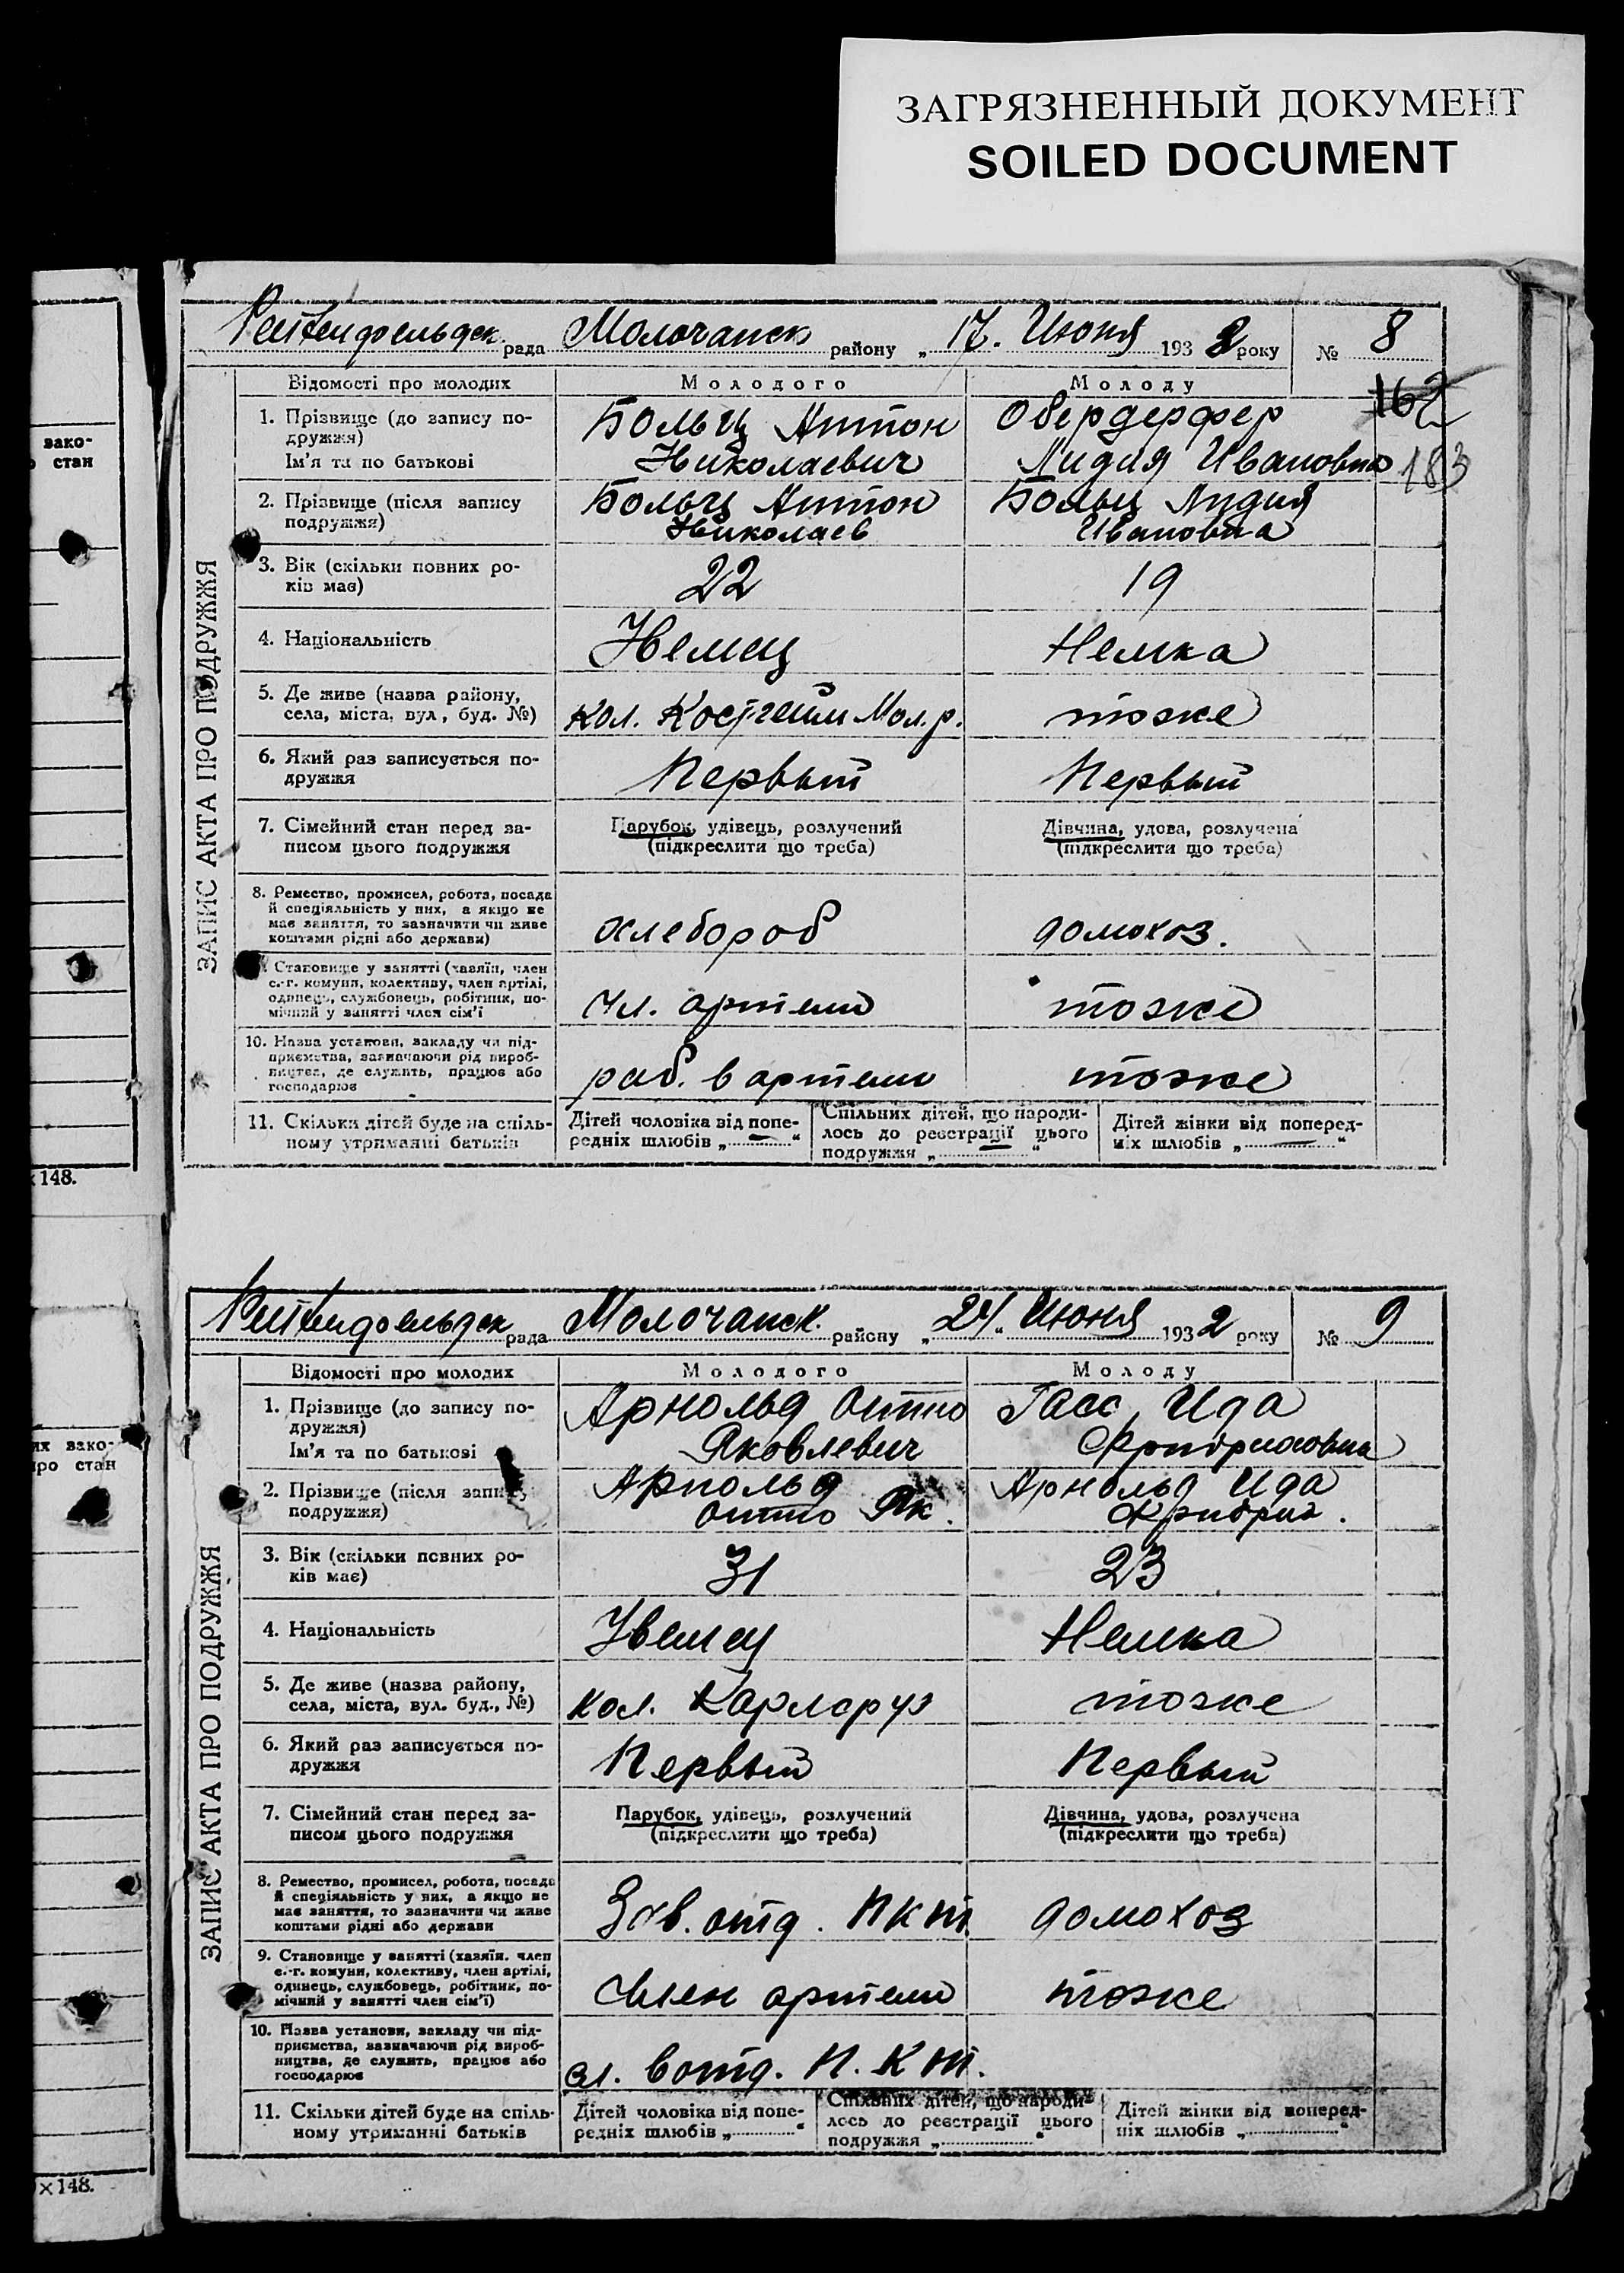 ЗАГРЯЗНЕННЫЙ ДОКУМЕНТ
SOILED DOCUMENT
зако-
стан
х148.
их зако-
про стан
×148.
Рейхенфельдск. рада Молочанск району „17. Июня 1932 року № 8
162
183
ЗАПИС АКТА ПРО ПОДРУЖЖЯ
Відомості про молодих Молодого Молоду
1. Прізвище (до запису по-
дружжя)
Ім'я та по батькові
Больц Антон
Николаевич
Обердерфер
Лидия Ивановна
2. Прізвище (після запису
подружжя)
Больц Антон
Николаев
Больц Лидия
Ивановна
3. Вік (скільки повних ро-
ків має)
22 19
4. Національність
Немец Немка
5. Де живе (назва району,
села, міста, вул, буд. №)
кол. Костгейм Мол.р. тоже
6. Який раз записується по-
дружжя
Первый Первый
7. Сімейний стан перед за-
писом цього подружжя
Парубок, удівець, розлучений
(підкреслити що треба)
Дівчина, удова, розлучена
(підкреслити що треба)
8. Ремество, промисел, робота, посада
й спеціяльність у них, а якщо не
має заняття, то зазначити чи живе
коштами рідні або держави)
хлебороб домохоз.
Становище у занятті (хазяїн, член
с.-г. комуни, колективу, член артілі,
одинець, службовець, робітник, по-
мічний у занятті член сім'ї
чл. артели тоже
10. Назва установи, закладу чи під-
приємства, зазначаючи рід вироб-
ництва, де служить, працює або
господарює
раб. в артели тоже
11. Скільки дітей буде на спіль-
ному утриманні батьків
Дітей чоловіка від попе-
редніх шлюбів „ — “
Спільних дітей, що народи-
лось до реєстрації цього
подружжя „ — “
Дітей жінки від поперед-
ніх шлюбів „ — “
Рейхенфельдск рада Молочанск. району „24“ Июня 1932 року № 9
ЗАПИС АКТА ПРО ПОДРУЖЖЯ
Відомості про молодих Молодого Молоду
1. Прізвище (до запису по-
дружжя)
Ім'я та по батькові
Арнольд Отто
Яковлевич
Гасс Ида
Фридриховна
2. Прізвище (після запису
подружжя)
Арнольд
Отто Як.
Арнольд Ида
Фридрих.
3. Вік (скільки повних ро-
ків має)
31 23
4. Національність
Немец Немка
5. Де живе (назва району,
села, міста, вул. буд., №)
кол. Карлсруэ тоже
6. Який раз записується по-
дружжя
Первый Первый
7. Сімейний стан перед за-
писом цього подружжя
Парубок, удівець, розлучений
(підкреслити що треба)
Дівчина, удова, розлучена
(підкреслити що треба)
8. Ремество, промисел, робота, посада
й спеціяльність у них, а якщо не
має заняття, то зазначити чи живе
коштами рідні або держави
Зав. отд. ПКТ. домохоз
9. Становище у занятті (хазяїн. член
с.-г. комуни, колективу, член артілі,
одинець, службовець, робітник, по-
мічний у занятті член сім'ї)
Член артели тоже
10. Назва установи, закладу чи під-
приємства, зазначаючи рід вироб-
ництва, де служить, працює або
господарює
сл. в отд. П. К Т.
11. Скільки дітей буде на спіль-
ному утриманні батьків
Дітей чоловіка від попе-
редніх шлюбів „ “
Спільних дітей, що народи-
лось до реєстрації цього
подружжя „ “
Дітей жінки від поперед-
ніх шлюбів „ “